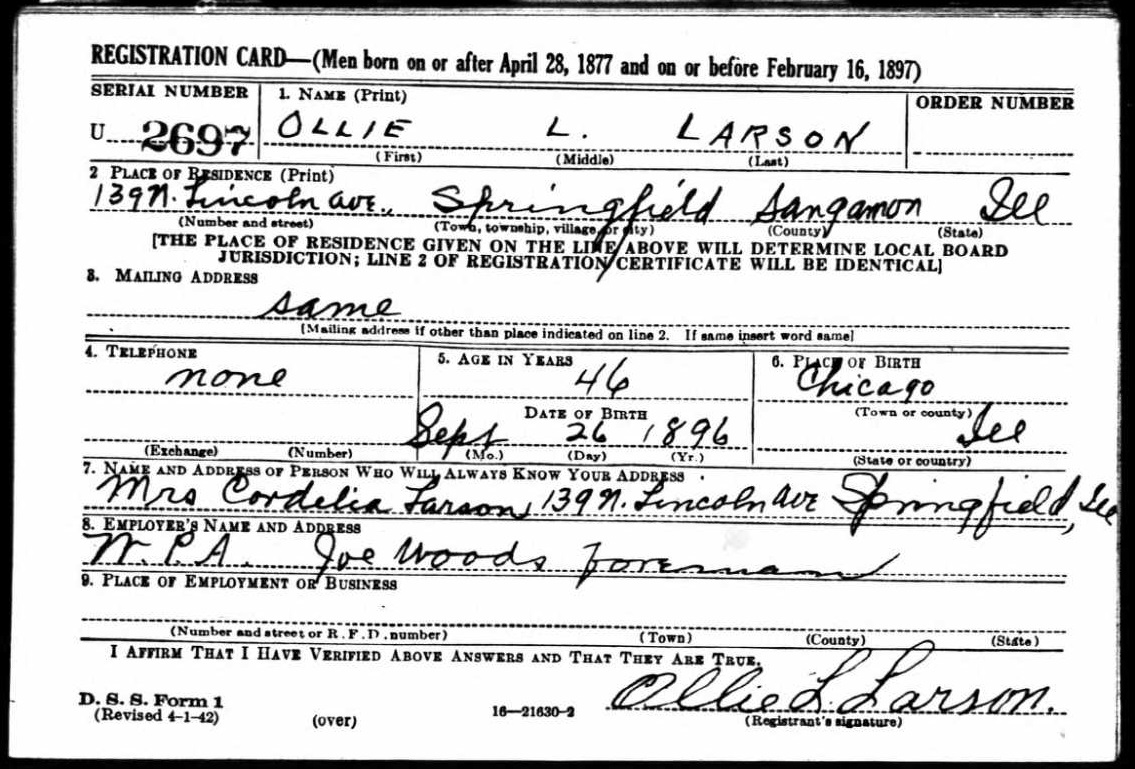 REGISTRATION CARD—(Men born on or after April 28, 1877 and on or before February 16, 1897)
SERIAL NUMBER 1. NAME (Print) ORDER NUMBER
U 2697 OLLIE L. LARSON
(First) (Middle) (Last)
2 PLACE OF RESIDENCE (Print)
139 N. Lincoln ave., Springfield Sangamon Ill
(Number and street) (Town, township, village, or city) (County) (State)
[THE PLACE OF RESIDENCE GIVEN ON THE LINE ABOVE WILL DETERMINE LOCAL BOARD
JURISDICTION; LINE 2 OF REGISTRATION CERTIFICATE WILL BE IDENTICAL]
3. MAILING ADDRESS
same
[Mailing address if other than place indicated on line 2. If same insert word same]
4. TELEPHONE 5. AGE IN YEARS 6. PLACE OF BIRTH
none 46 Chicago
DATE OF BIRTH (Town or county)
Sept 26 1896 Ill
(Exchange) (Number) (Mo.) (Day) (Yr.) (State or country)
7. NAME AND ADDRESS OF PERSON WHO WILL ALWAYS KNOW YOUR ADDRESS
Mrs Cordelia Larson, 139 N. Lincoln ave Springfield, Ill
8. EMPLOYER'S NAME AND ADDRESS
W.P.A. Joe Woods foreman
9. PLACE OF EMPLOYMENT OR BUSINESS
(Number and street or R.F.D. number) (Town) (County) (State)
I AFFIRM THAT I HAVE VERIFIED ABOVE ANSWERS AND THAT THEY ARE TRUE.
Ollie L. Larson.
D. S. S. Form 1
(Revised 4-1-42) (over) 16—21630-2 (Registrant's signature)